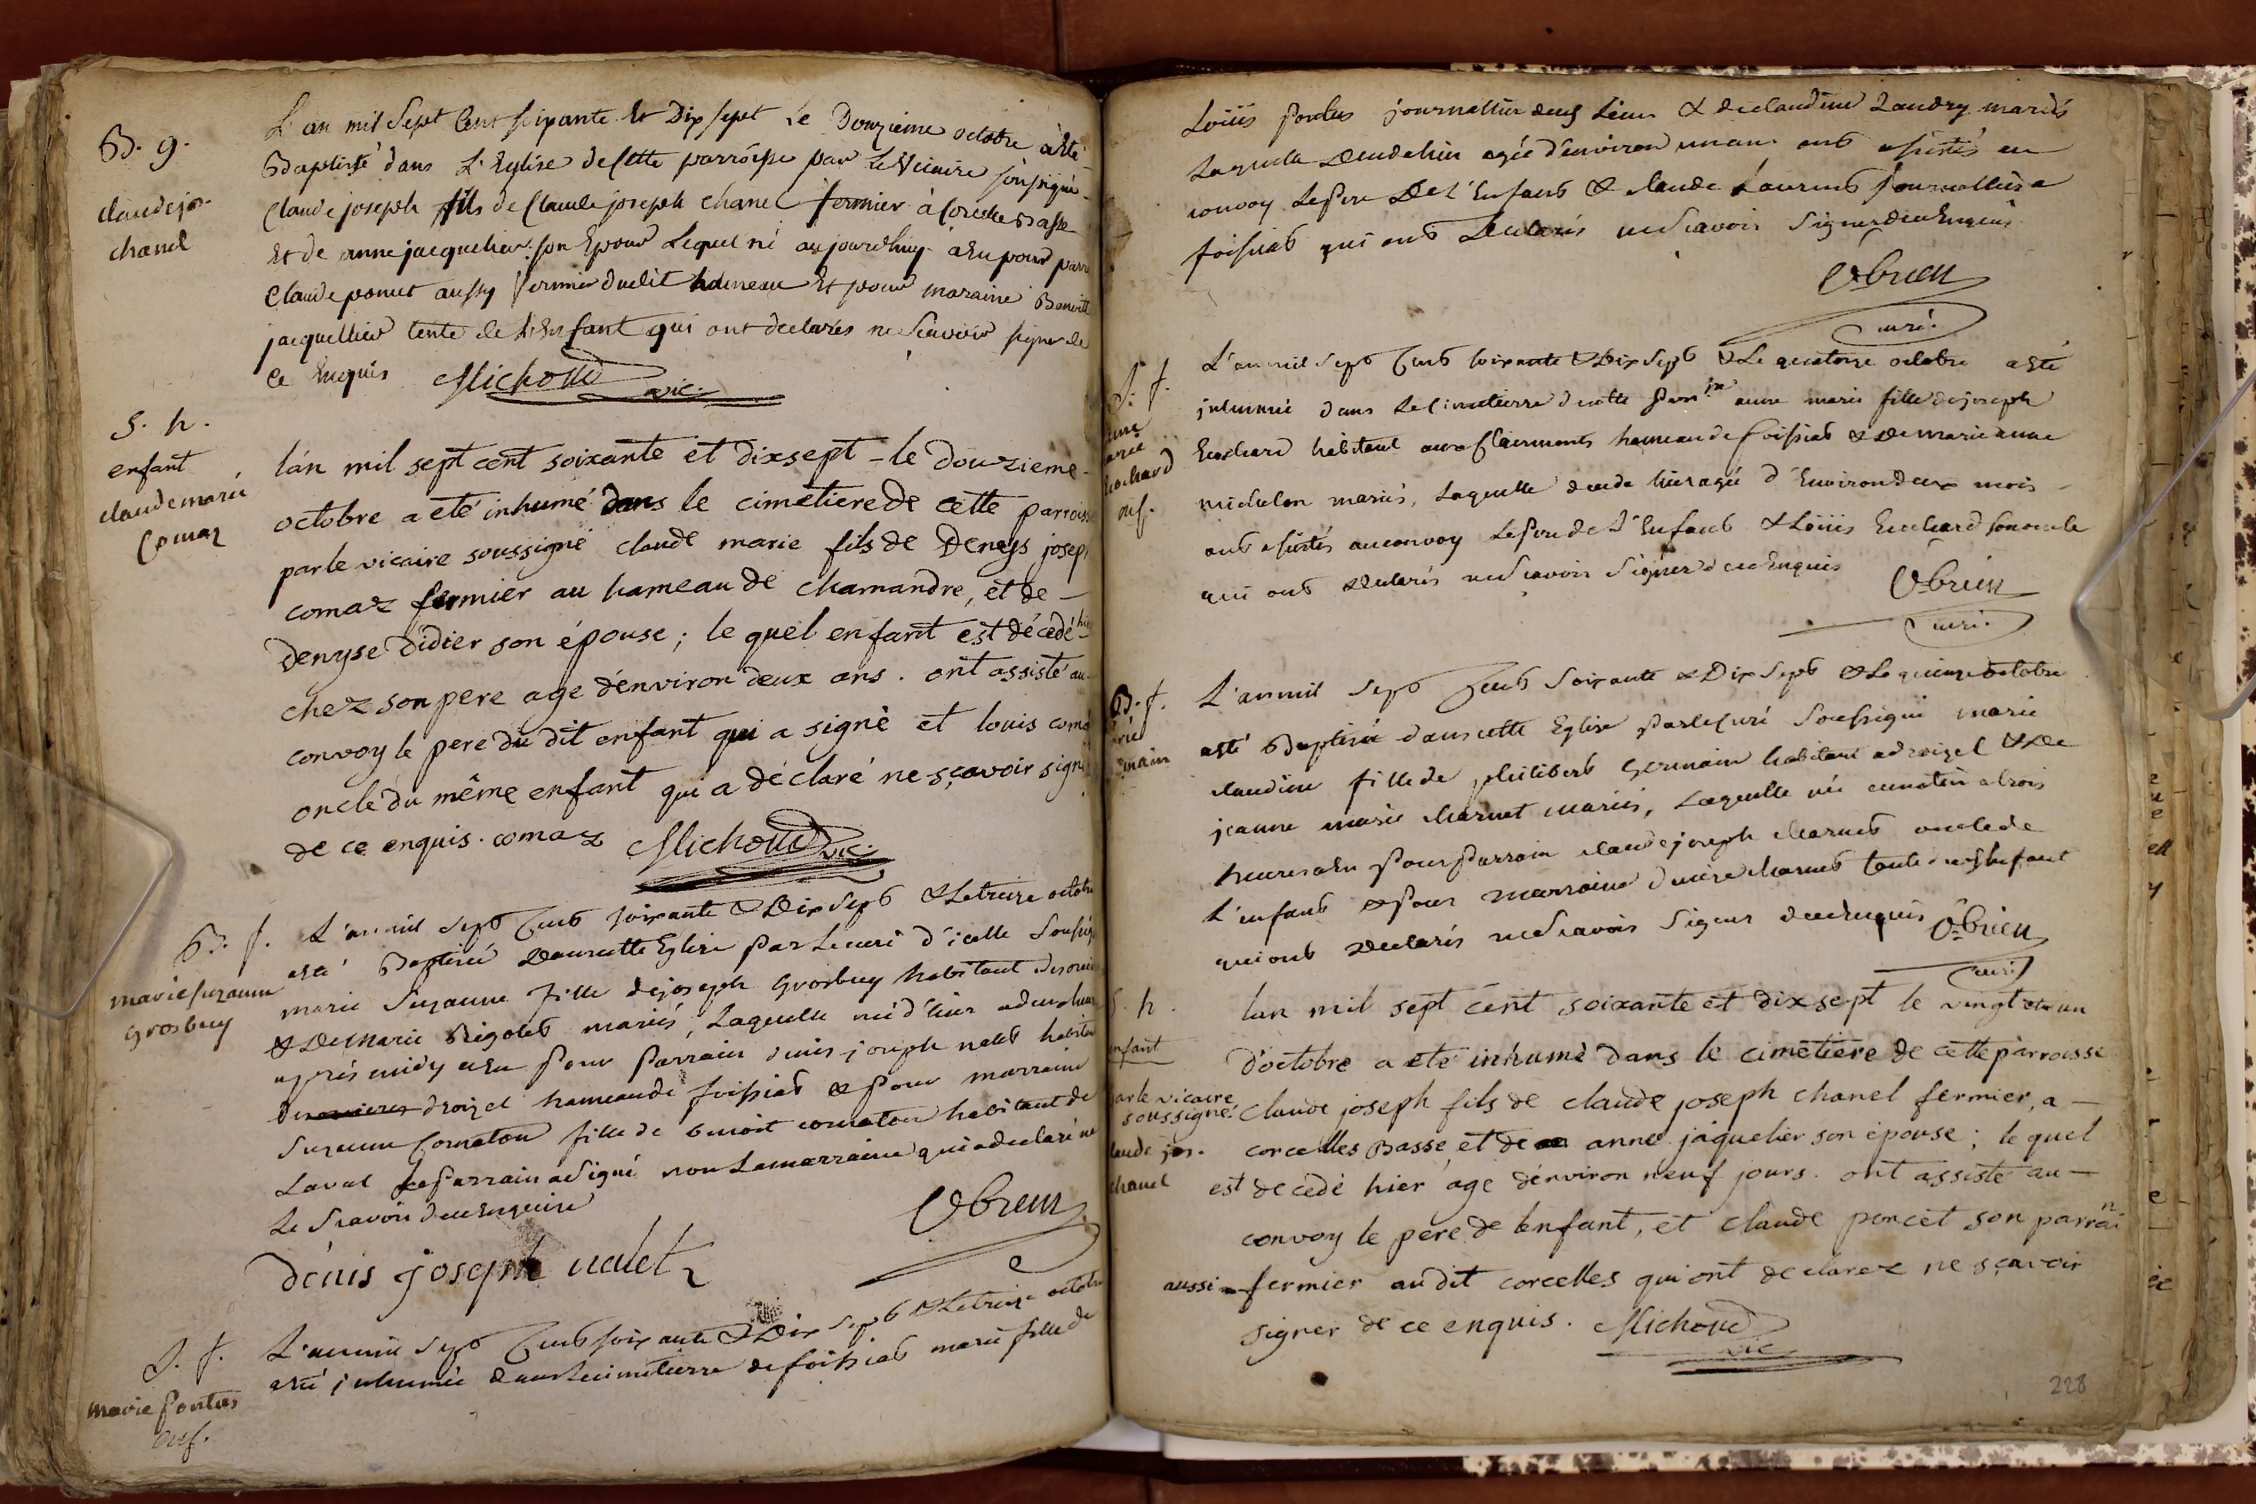 B. g.
claude jos.
chanel
L'an mil Sept Cent soixante Et Dix sept Le Douzieme octobre a Eté
Baptisé dans L'Eglise de Cette parroisse par Le Vicaire soussigné
Claude joseph fils de Claude joseph chanel fermier à Corcelle Basse
Et de anne jacquelier son Epouse Lequel né aujourdhuy a Eu pour parr
Claude poncet aussy fermier dudit hameau Et pour maraine Benoitte
jacquellier tente de L'Enfant qui ont declarés ne Scavoir signer de
Ce Enquis Michoud vic.
S. h.
enfant
claude marie
Comaz
lán mil sept cent soixante et dixsept - le douzieme
octobre a eté inhumé dans le cimetiere de cette parroisse
par le vicaire soussigné claude marie fils de Denys joseph
comaz fermier au hameau de chamandre, et de
Denyse Didier son épouse; le quel enfant est décedé hier
chez son pere age dénviron deux ans. ont assisté au
convoy le pere du dit enfant qui a signé et louis coma
oncle du même enfant qui a déclaré ne sçavoir signe
de ce enquis. comaz Michoud vic.
B. f.
marie suzanne
Grosbuy
L'an mil Sept Cent soixante & Dix Sept & Le treize octobre
asté Baptisée Dans cette Eglise Par Le curé d'icelle Soussig
marie Suzanne fille de joseph Grosbuy habitant
& De Marie Rigolet mariés, Laquelle née d'hier a deux heures
après midy a Eu Pour Parrain denis joseph nalet habitant
droizel hameau de foissiat & Pour marraine
Suzanne Cornaton fille de benoit cornaton habitant de
Laval Le Parrain a Signé non La marraine qui a declaré ne
Le Sçavoir de ce Enquise
OBrien
dénis joseph nalet
S. f.
marie Pontus
Enf.
L'an mil Sept Cent soixante & Dix Sept & Le treize octobre
asté inhumée dans Le cimetierre de foissiat marie fille de
Loüis Pontus journallier de ce Lieu & de claudine Landry mariés
Laquelle Decedée hier agée d'environ un an ont assistés au
convoy Le Pere De L'Enfant & claude Laurent journallier a
foissiat qui ont Declarés ne Scavoir Signer de ce Enquis
OBrien
curé.
S. f.
anne
marie
Euchard
enf.
L'an mil Sept Cent Soixante & Dix Sept & Le quatorze octobre a Eté
inhumée dans Le Cimetierre de cette Parr.sse anne marie fille de joseph
Euchard habitant aux Clairmonts hameau de foissiat & De marie anne
michelon mariés, Laquelle decedée hier agée d'Environ deux mois
ont assistés au convoy Le Pere de L'Enfant & Loüis Euchard son oncle
qui ont Declarés ne Scavoir Signer de ce Enquis
OBrien
curé.
B. f.
L'an mil Sept Cent Soixante & Dix Sept & Le quinze octobre
asté Baptisée dans cette Eglise Par Le curé Soussigné marie
claudine fille de philibert Germain habitant a droizel & De
jeanne marie charnet mariés, Laquelle née ce matin a trois
heures a Eu Pour Parrain claude joseph charnet oncle de
L'enfant & Pour marraine denise charnet tante de L'Enfant
qui ont Declarés ne Scavoir Signer de ce Enquis OBrien
curé
S. h.
enfant
claude jos.
chanel
lan mil sept cent soixante et dixsept le vingt et un
d'octobre a eté inhumé dans le cimétiere de cette parroisse
par le vicaire
soussigné. claude joseph fils de claude joseph chanel fermier, a
corcelles Basse, et de anne jaquelier son épouse; le quel
est decedé hier age dénviron neuf jours. ont assisté au
convoy le pere de lenfant, et claude poncet son parrain
aussi fermier audit corcelles qui ont declarez ne sçavoir
signer de ce enquis. Michoud
vic
228